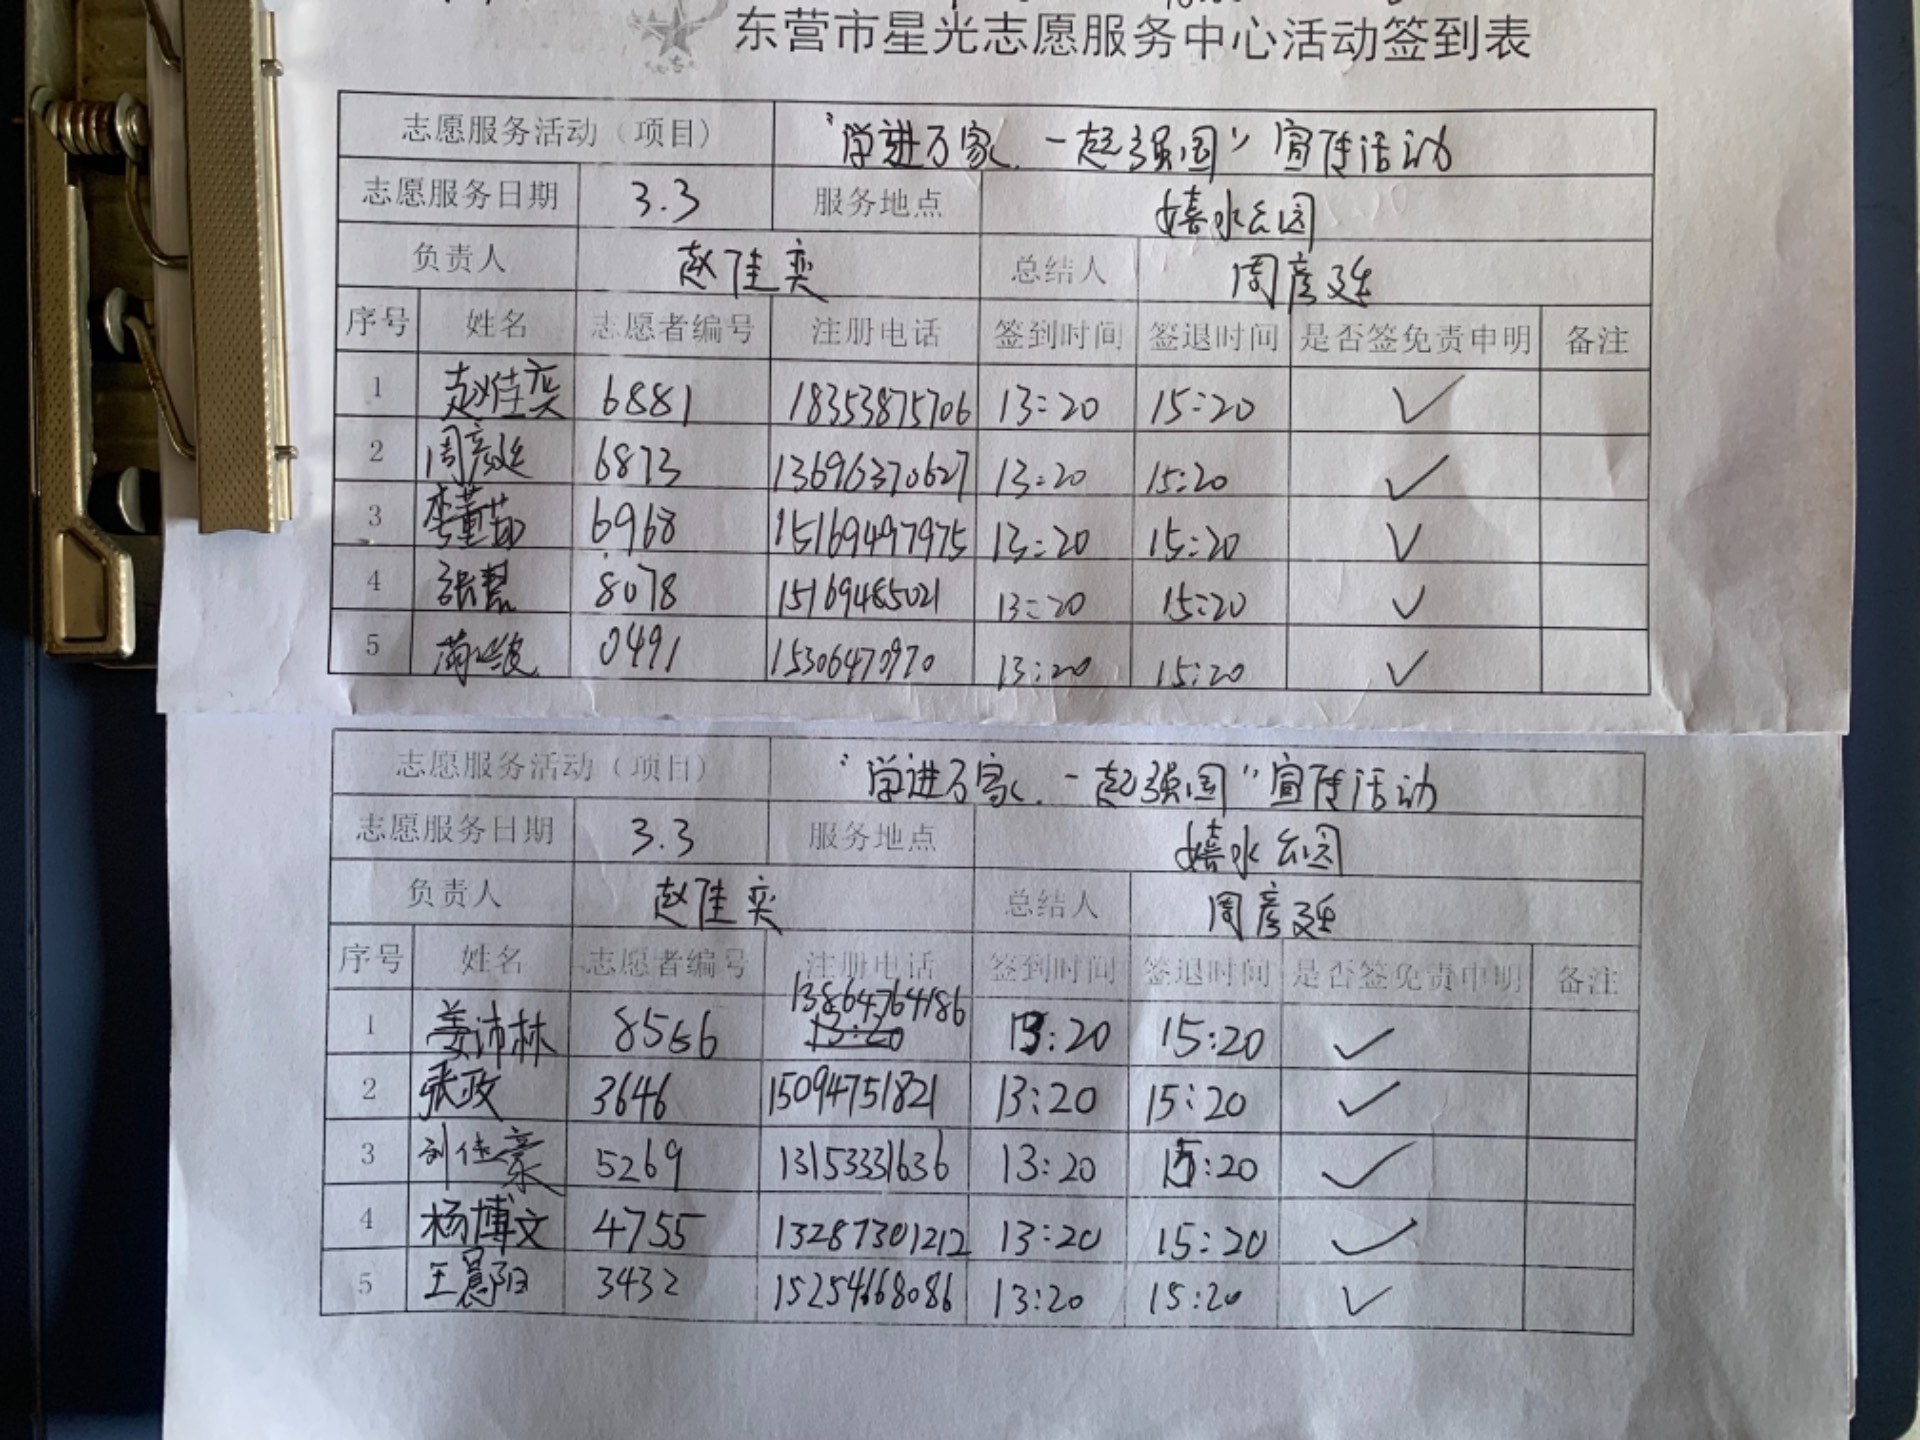 东营市星光志愿服务中心活动签到表
志愿服务活动（项目） “学进万家、一起强国”宣传活动
志愿服务日期 3.3 服务地点 嬉水公园
负责人 赵佳奕 总结人 周彦延
序号 姓名 志愿者编号 注册电话 签到时间 签退时间 是否签免责申明 备注
1 赵佳奕 6881 18353875706 13:20 15:20 ✓
2 周彦延 6873 13696370627 13:20 15:20 ✓
3 李董茹 6968 15169497975 13:20 15:20 ✓
4 张慧 8078 15169485021 13:20 15:20 ✓
5 0491 15306470970 13:20 15:20 ✓
志愿服务活动（项目） “学进万家、一起强国”宣传活动
志愿服务日期 3.3 服务地点 嬉水公园
负责人 赵佳奕 总结人 周彦延
序号 姓名 志愿者编号 注册电话 签到时间 签退时间 是否签免责申明 备注
1 姜沛林 8566 13864764186 13:20 13:20 15:20 ✓
2 张政 3646 15094751821 13:20 15:20 ✓
3 刘佳豪 5269 13153331636 13:20 15:20 ✓
4 杨博文 4755 13287301212 13:20 15:20 ✓
5 王晨阳 3432 15254668086 13:20 15:20 ✓